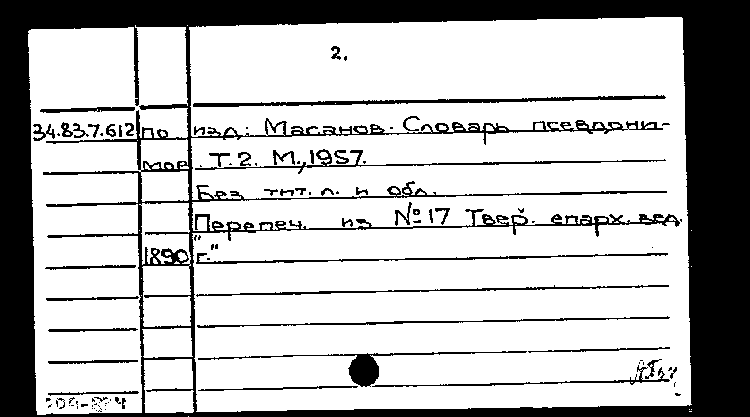 2.
34.83.7.612 по изд.: Масанов. Словарь псевдони-
мов. Т.2. М., 1957.
Без тит. л. и обл.
Перепеч. из "№ 17 Твер. епарх. вед.
1890 г."